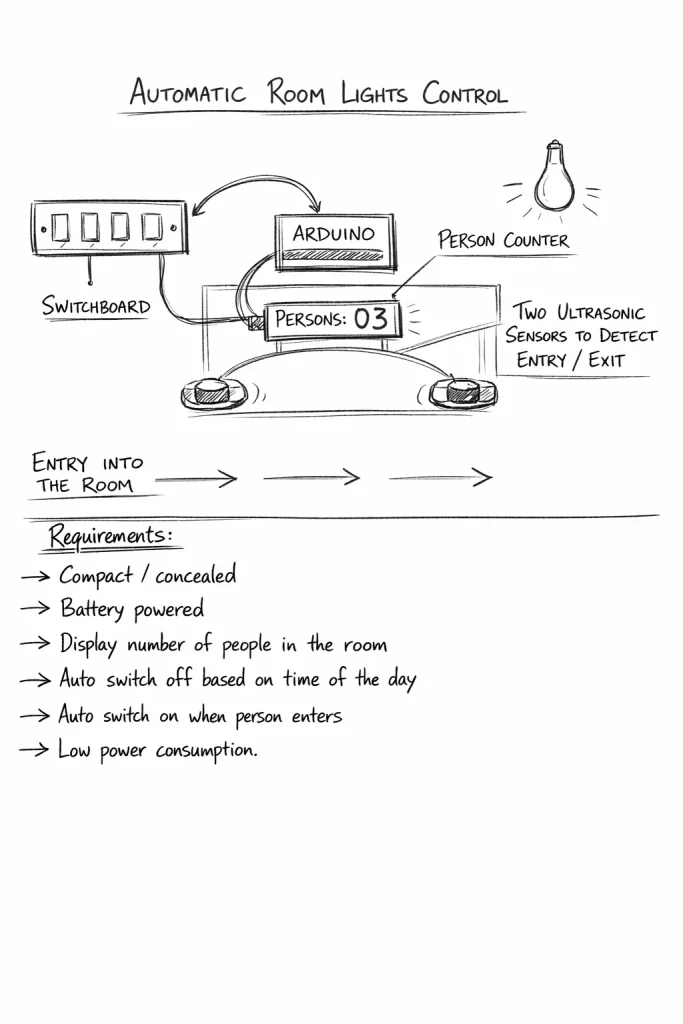 AUTOMATIC ROOM LIGHTS CONTROL
ARDUINO
PERSON COUNTER
SWITCHBOARD
PERSONS: 03
TWO ULTRASONIC
SENSORS TO DETECT
ENTRY / EXIT
ENTRY INTO
THE ROOM
Requirements:
→ Compact / concealed
→ Battery powered
→ Display number of people in the room
→ Auto switch off based on time of the day
→ Auto switch on when person enters
→ Low power consumption.